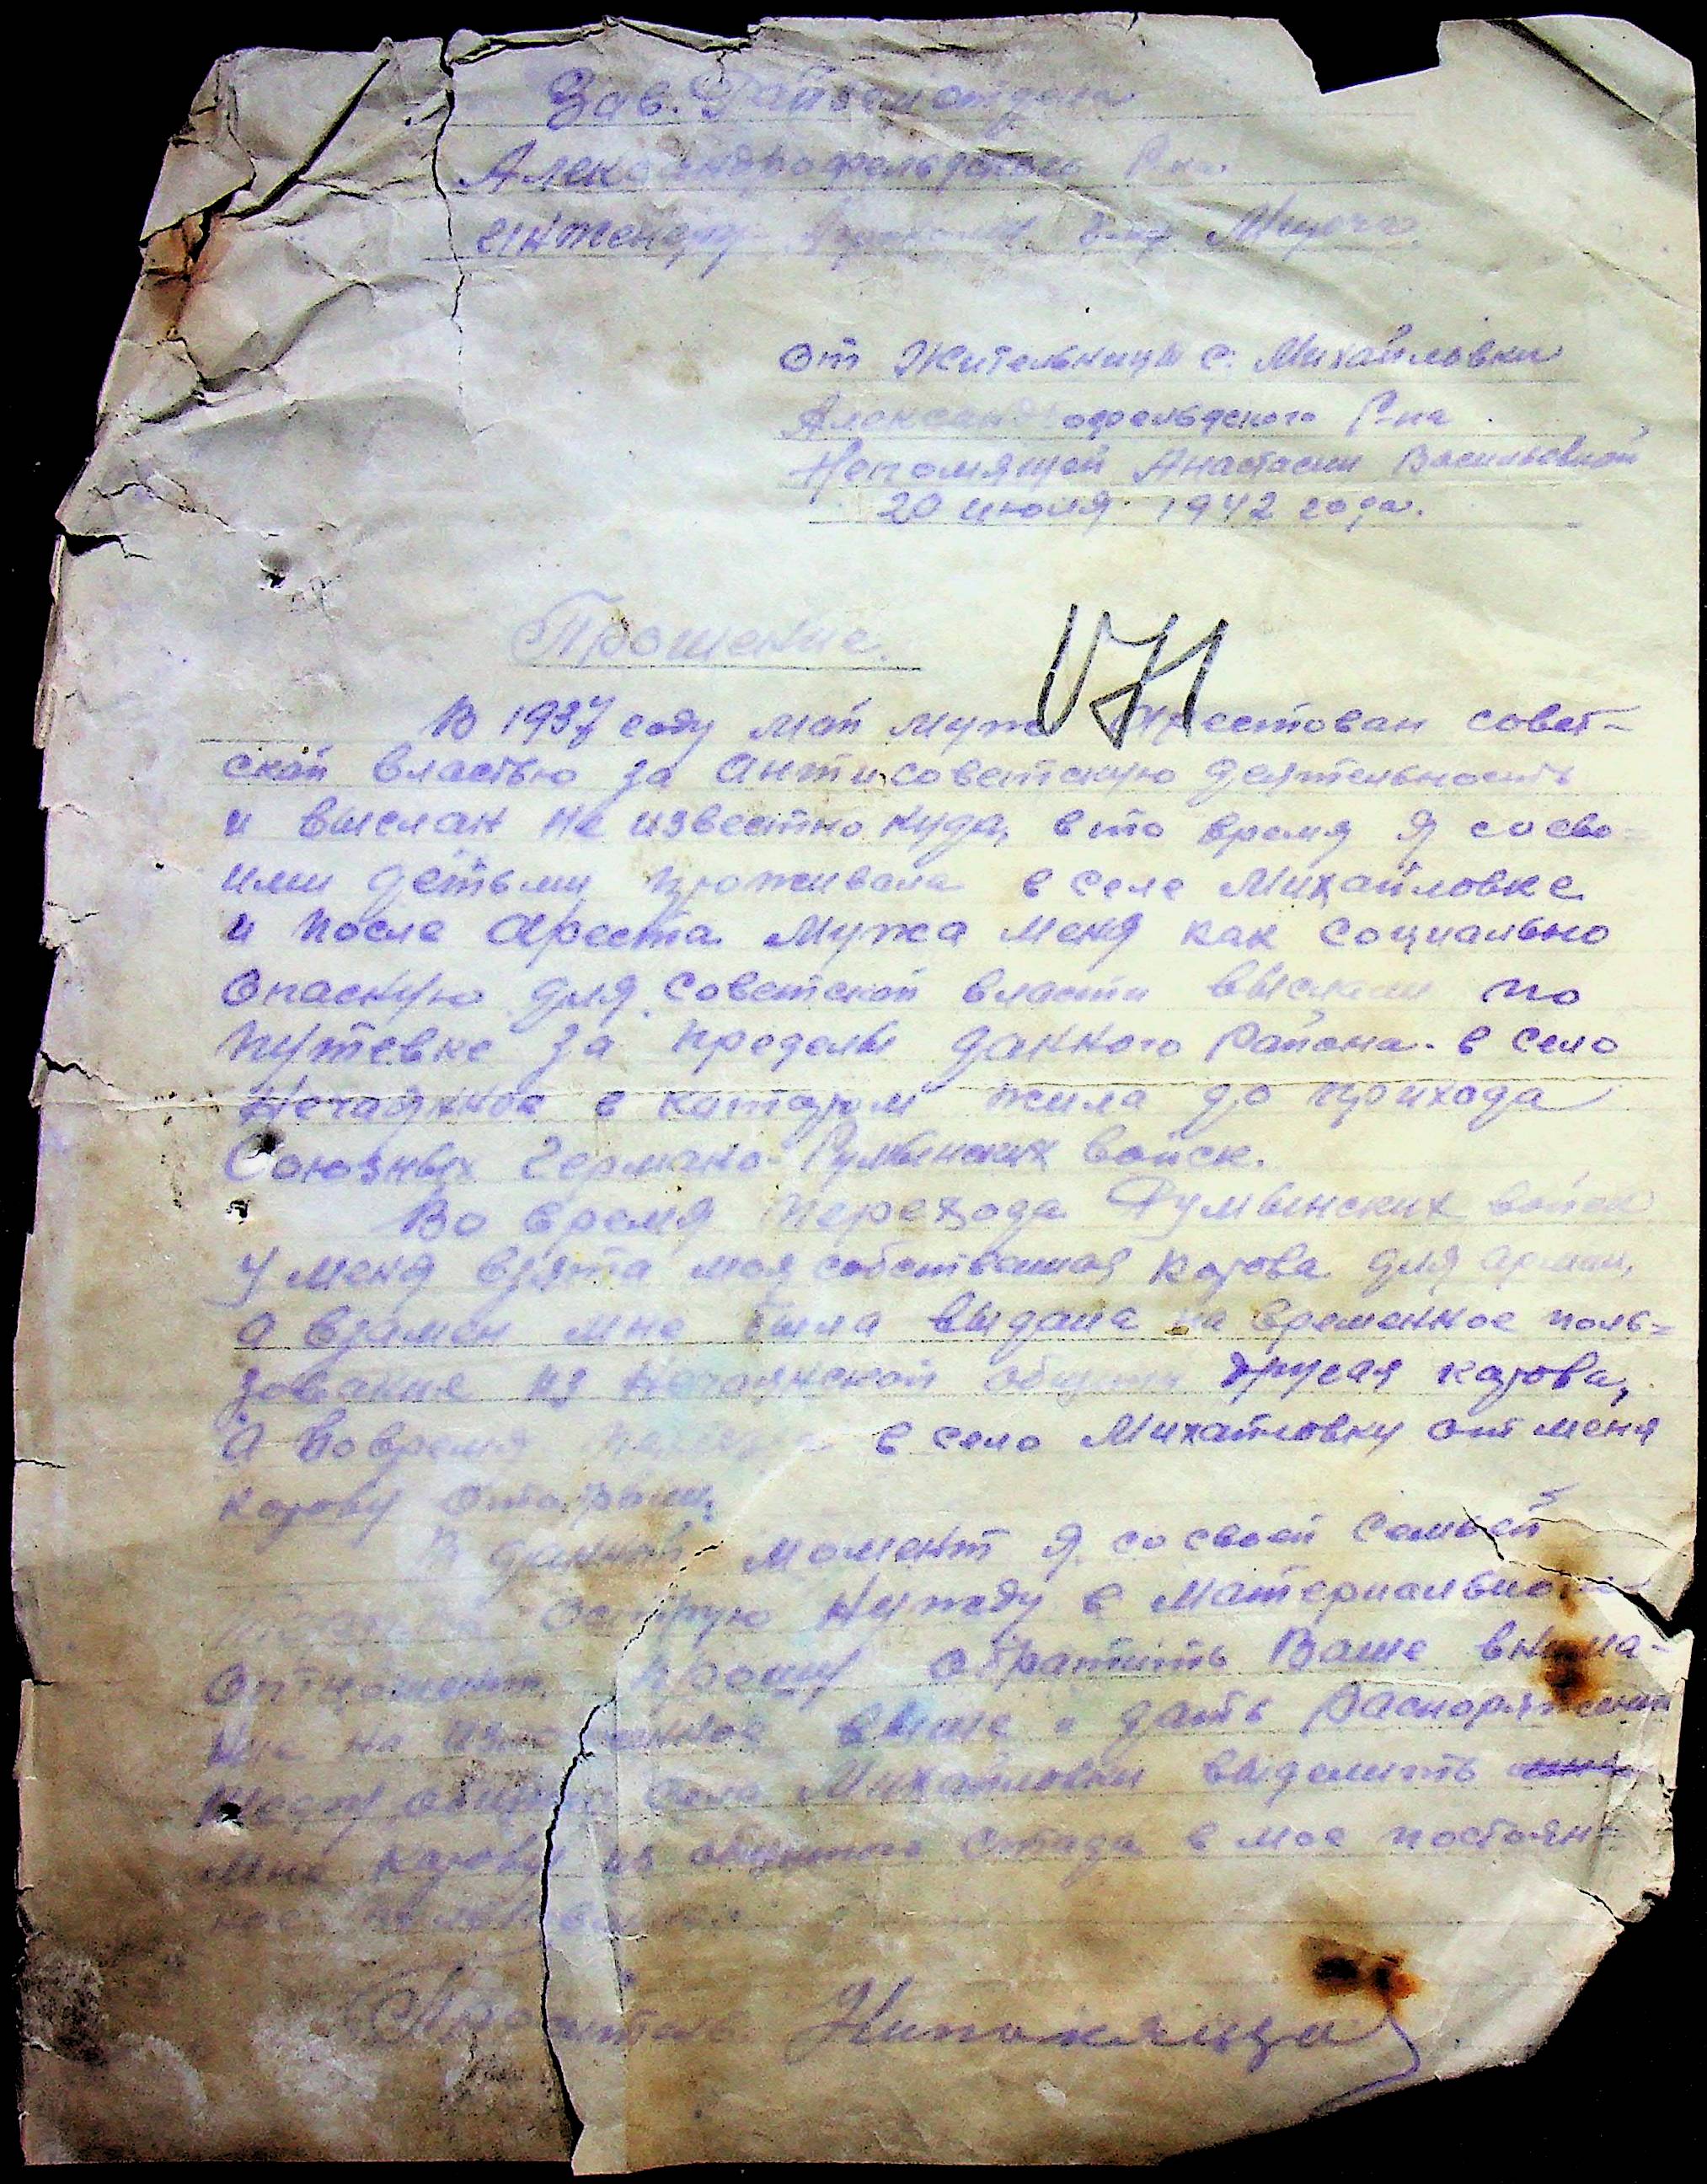 Зав. Райземотдела
Александрофельдского Р-на
инженеру
От Жительницы с. Михайловки
Александрофельдского Р-на
Непомящей Анастасии Васильевной
20 июля 1942 года.
Прошение.
В 1937 году мой муж арестован совет-
ской властью за антисоветскую деятельность
и выслан не известно куда, в то время я со сво=
ими детьми проживала в селе Михайловке
и после ареста мужа меня как социально
опасную для советской власти выслали по
путевке за пределы данного Района в село
Нечаянное в котором жила до прихода
Союзных Германо-Румынских войск.
Во время перехода Румынских войск
у меня взята моя собственная корова для армии,
а взамен мне была выдана на временное поль=
зование из Нечаянской общины другая корова,
а во время в село Михайловку от меня
корову отобрали.
В данный момент я со своей семьей
острую нужду в материальном
отношении прошу обратить Ваше внима-
ние на изложенное выше и дать распоряжение
общины села Михайловки выделить
мне корову из общиного стада в мое постоян=
ное пользование
Проситель